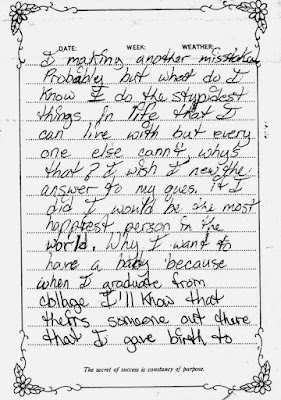 DATE: WEEK: WEATHER:
I making another misstake
Probably but what do I
know I do the stupidest
things in life that I
can live with but every
one else cann't why's
that? I wish I new the
answer to my ques. if I
did I would be the most
happiest person in the
world. Why I want to
have a baby because
when I graduate from
collage I'll know that
theirs someone out there
that I gave birth to
The secret of success is constancy of purpose.